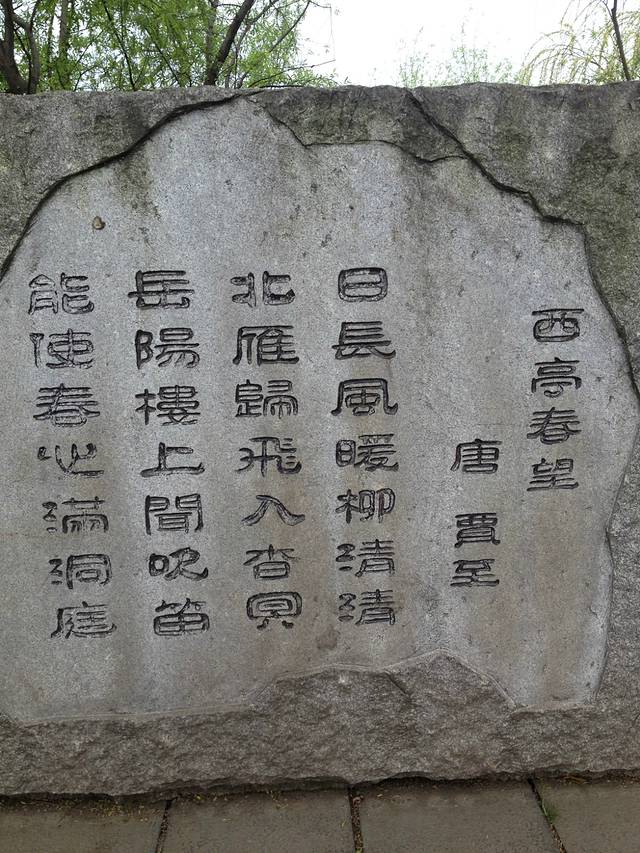 西亭春望
唐 賈至
日長風暖柳清清
北雁歸飛入杳冥
岳陽樓上聞吹笛
能使春心滿洞庭